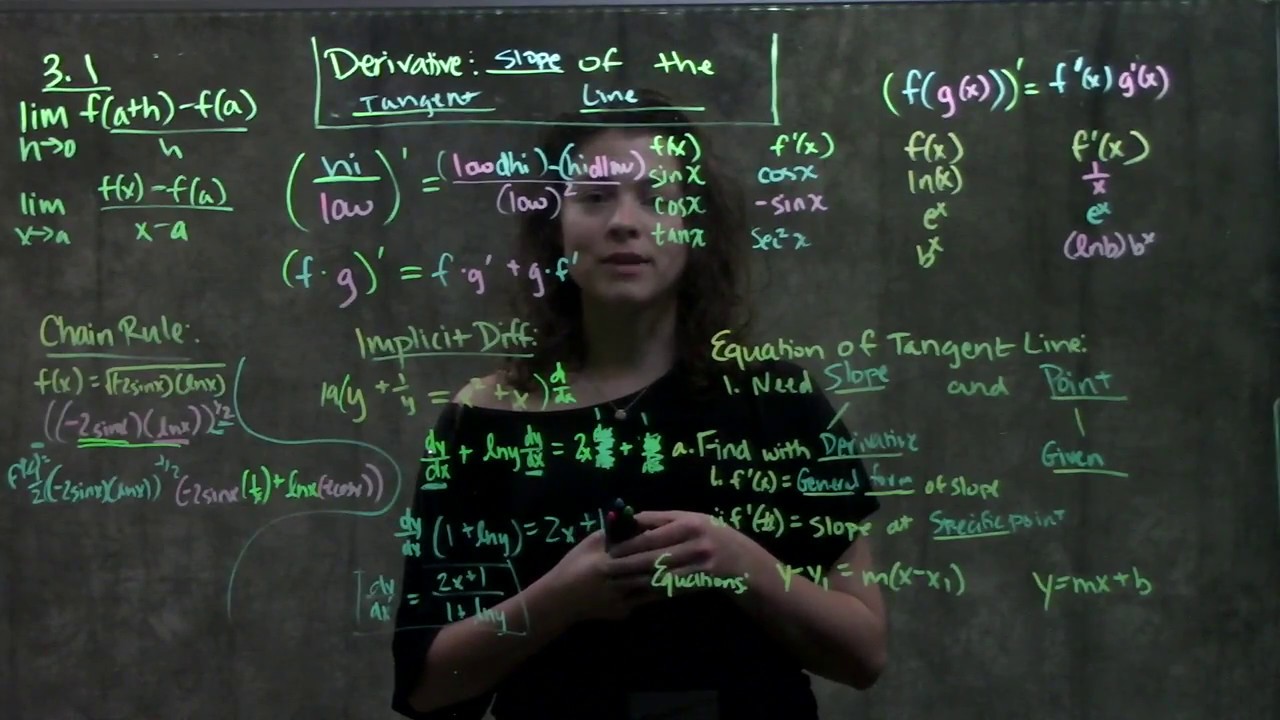 3.1
lim h→0 f(a+h)-f(a) / h
lim x→a f(x)-f(a) / x-a
Derivative: Slope of the
Tangent Line
(hi/low)' = (lowdhi)-(hidlow) / (low)²
(f·g)' = f·g' + g·f'
f(x) f'(x)
sinx cosx
cosx -sinx
tanx sec²x
(f(g(x)))' = f'(x) g'(x)
f(x) f'(x)
ln(x) 1/x
eˣ eˣ
bˣ (lnb)bˣ
Chain Rule:
f(x) = √(-2sinx)(lnx)
((-2sinx)(lnx))^1/2
1/2(-2sinx)(lnx))^-1/2 (-2sinx(1/x)+lnx(-2cosx))
Implicit Diff:
dy/dx + lny dy/dx = 2x + 1
dy/dx (1+lny) = 2x+1
dy/dx = 2x+1 / 1+lny
Equation of Tangent Line:
1. Need Slope and Point
a. Find with Derivative Given
i. f'(x) = General form of slope
ii f'( ) = Slope at Specific point
Equations: y-y₁ = m(x-x₁) y=mx+b